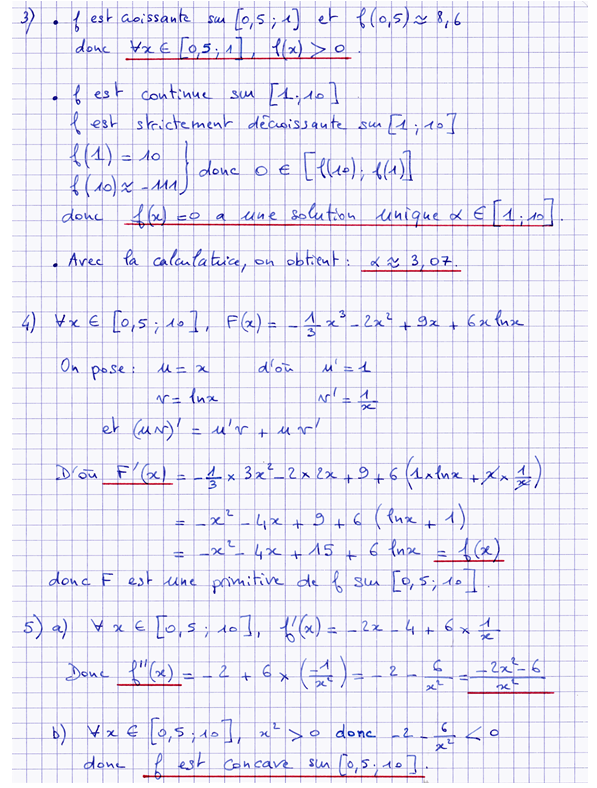 3) • f est croissante sur [0,5 ; 1] et f(0,5) ≈ 8,6
donc ∀x ∈ [0,5 ; 1], f(x) > 0.
• f est continue sur [1 ; 10]
f est strictement décroissante sur [1 ; 10]
f(1) = 10
f(10) ≈ -111 } donc 0 ∈ [f(10) ; f(1)]
donc f(x) = 0 a une solution unique α ∈ [1 ; 10].
• Avec la calculatrice, on obtient : α ≈ 3,07.
4) ∀x ∈ [0,5 ; 10], F(x) = -1/3 x³ - 2x² + 9x + 6x lnx
On pose : u = x d'où u' = 1
v = lnx v' = 1/x
et (uv)' = u'v + uv'
D'où F'(x) = -1/3 × 3x² - 2 × 2x + 9 + 6 (1 × lnx + x × 1/x)
= -x² - 4x + 9 + 6 (lnx + 1)
= -x² - 4x + 15 + 6 lnx = f(x)
donc F est une primitive de f sur [0,5 ; 10].
5) a) ∀x ∈ [0,5 ; 10], f'(x) = -2x - 4 + 6 × 1/x
Donc f''(x) = -2 + 6 × (-1/x²) = -2 - 6/x² = (-2x² - 6)/x²
b) ∀x ∈ [0,5 ; 10], x² > 0 donc -2 - 6/x² < 0
donc f est concave sur [0,5 ; 10].